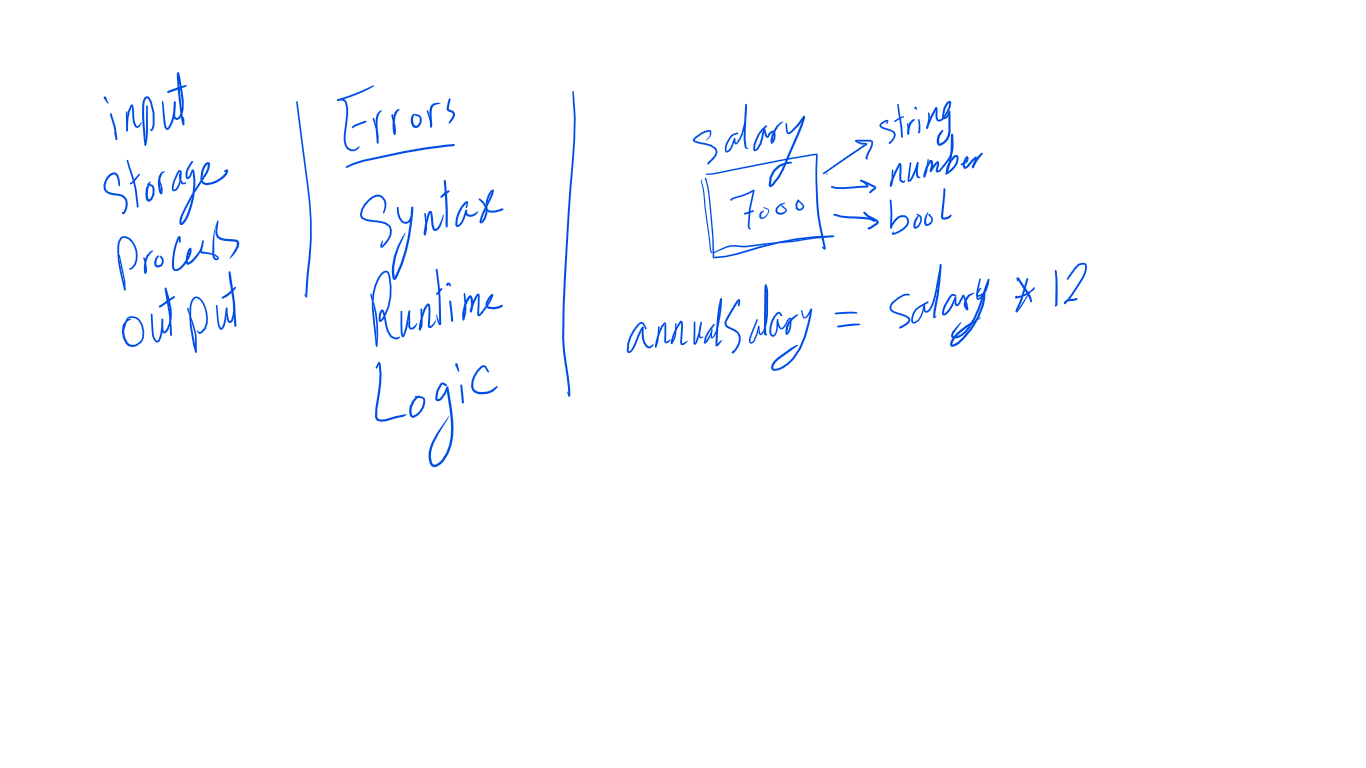 input
Storage
Process
output
Errors
Syntax
Runtime
Logic
salary
7000
string
number
bool
annualSalary = salary * 12